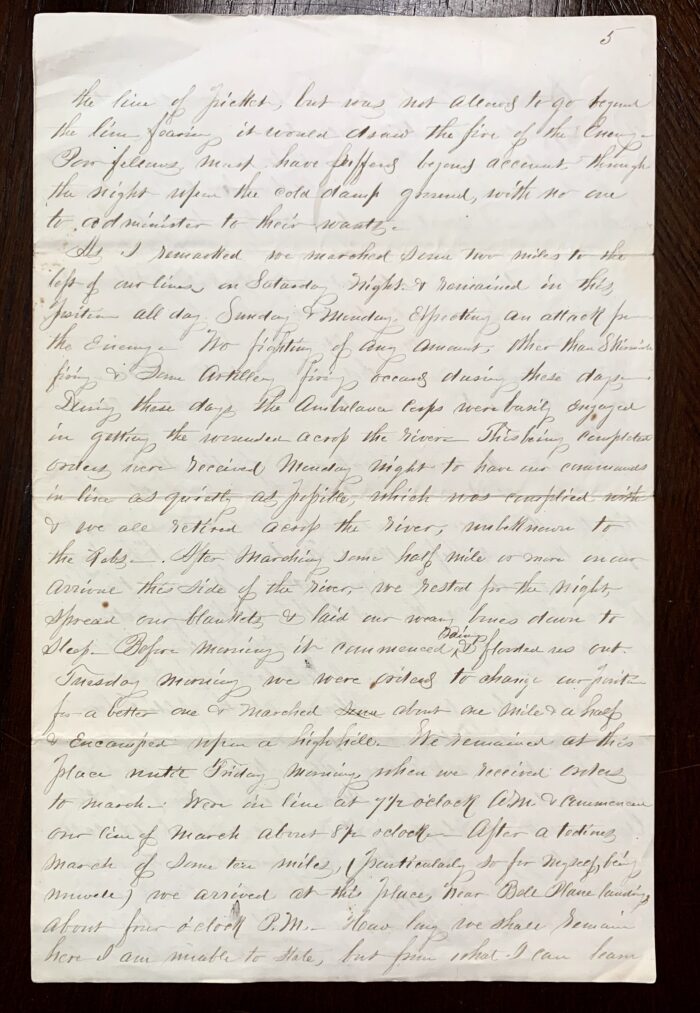 5
the line of Picket, but was not allowed to go beyond
the line fearing it would draw the fire of the Enemy.
Poor fellows must have suffered beyond account through
the night upon the cold damp ground, with no one
to administer to their wants.
As I remarked we marched some two miles to the
left of our lines, on Saturday night & remained in this
position all day Sunday & Monday, Expecting an attack
the Enemy. No fighting of any amount, other than Skirmish
firing & Some Artillery firing occurred during these days.
During these days the Ambulance Corps were busily Engaged
in getting the wounded across the river. This being completed
orders were received Monday night to have our commands
in line as quietly as possible, which was complied with
& we all retired across the river, unbeknown to
the Rebs. After marching some half mile or more on our
arrival this side of the river, we rested for the night,
spread our blankets & laid our weary bones down to
sleep. Before morning it commenced Raining & flooded us out.
Tuesday morning we were ordered to change our position
for a better one & marched about one mile & a half
& Encamped upon a high hill. We remained at this
place until Friday morning, when we received orders
to march. Were in line at 7½ o'clock A.M. & commenced
our line of march about 8½ o'clock. After a tedious
march of some ten miles, (particularly so for myself, being
unwell) we arrived at this place, near Bell Plane landing
about four o'clock P.M. How long we shall remain
here I am unable to state, but from what I can learn